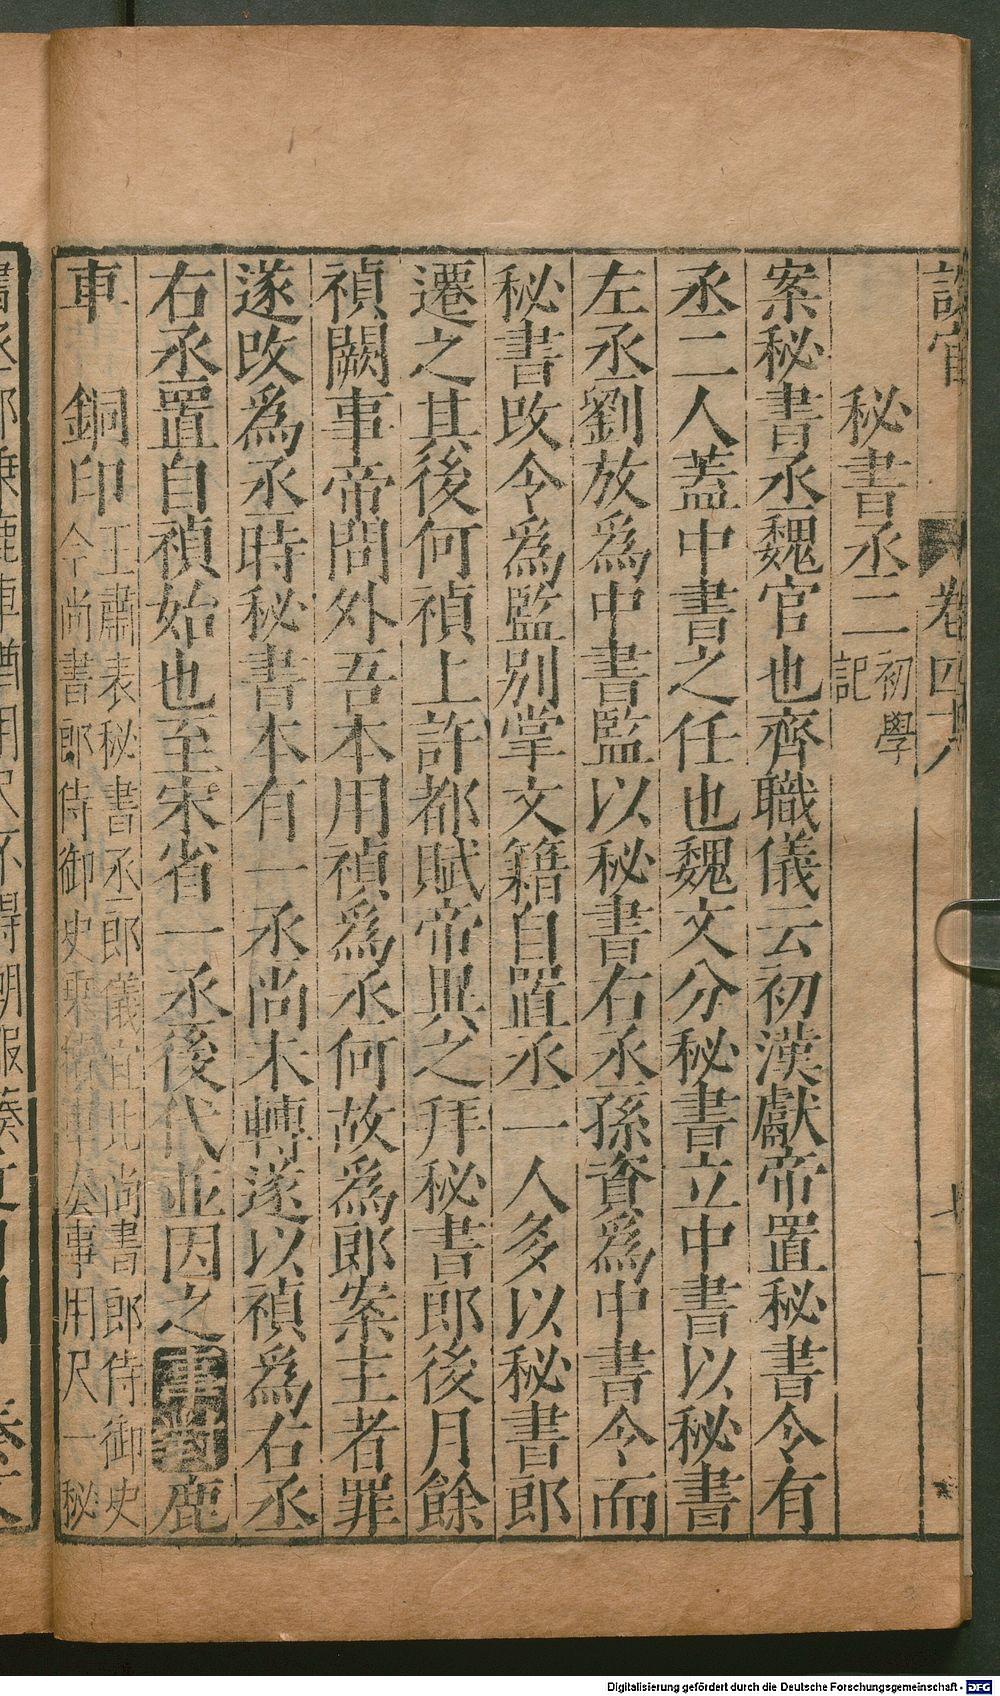 設官 卷四十八
秘書丞二 初學記
案秘書丞魏官也齊職儀云初漢獻帝置秘書令有
丞二人蓋中書之任也魏文分秘書立中書以秘書
左丞劉放爲中書監以秘書右丞孫資爲中書令而
秘書改令爲監別掌文籍自置丞一人多以秘書郎
遷之其後何禎上許都賦帝異之拜秘書郎後月餘
禎闕事帝問外吾本用禎爲丞何故爲郎案主者罪
遂改爲丞時秘書本有一丞尚未轉遂以禎爲右丞
右丞置自禎始也至宋省一丞後代並因之 事對 鹿
車 銅印 王肅表秘書丞郎儀宜比尚書郎侍御史
今尚書郎侍御史乘犢車公事用尺一秘
書丞郎乘鹿車猶用尺不得朝服奏
Digitalisierung gefördert durch die Deutsche Forschungsgemeinschaft - DFG